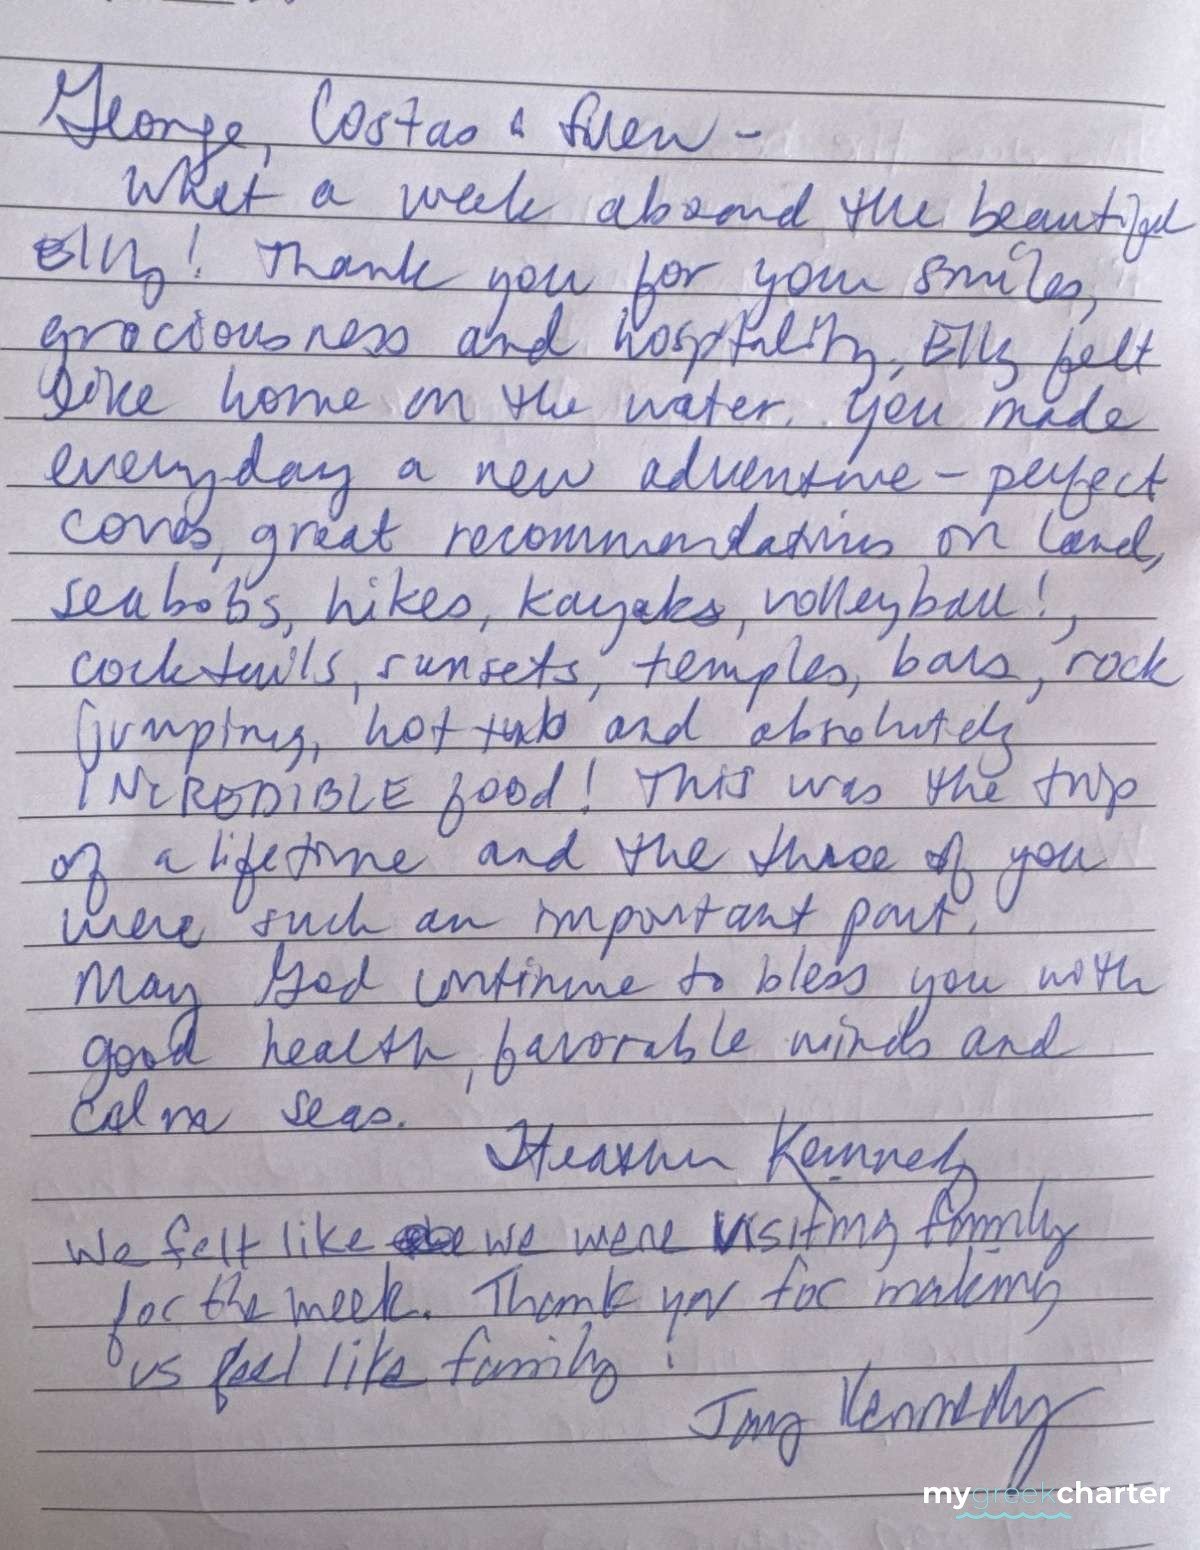 George, Costas & –
What a week aboard the beautiful
Elly! Thank you for your smiles,
graciousness and hospitality, Elly felt
like home on the water. You made
everyday a new adventure – perfect
coves, great recommendations on land,
seabobs, hikes, kayaks, volleyball!,
cocktails, sunsets, temples, bars, rock
jumping, hot tub and absolutely
INCREDIBLE food! This was the trip
of a lifetime and the three of you
were such an important part.
May God continue to bless you with
good health, favorable winds and
calm seas.
Heather Kennedy
We felt like we were visiting family
for the week. Thank you for making
us feel like family!
Kennedy
mygreekcharter